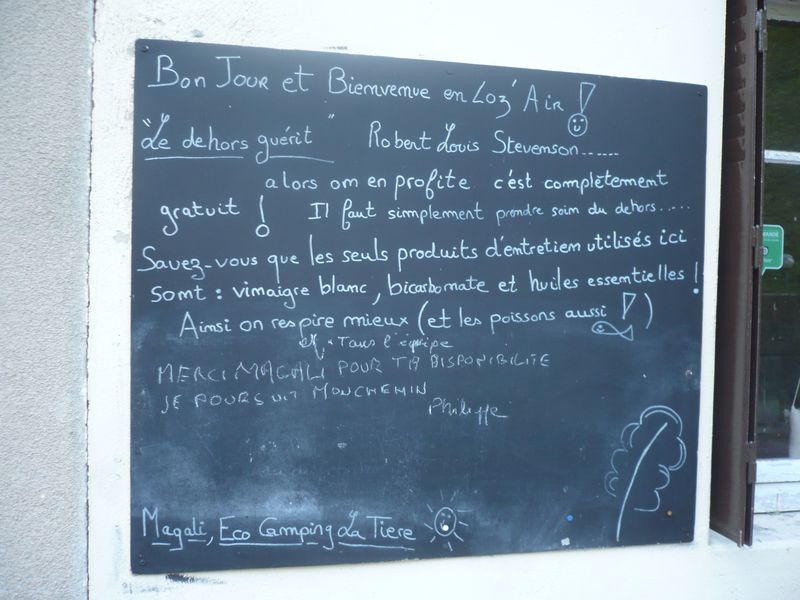 Bon Jour et Bienvenue en Loz'Air !
"Le dehors guérit" Robert Louis Stevenson......
alors on en profite c'est complètement
gratuit ! Il faut simplement prendre soin du dehors.....
Savez-vous que les seuls produits d'entretien utilisés ici
sont : vinaigre blanc, bicarbonate et huiles essentielles !
Ainsi on respire mieux (et les poissons aussi !)
l'équipe
MERCI MAGALI POUR TA DISPONIBILITE
JE POURSUIT MON CHEMIN
Philippe
Magali, Eco Camping La Tiere